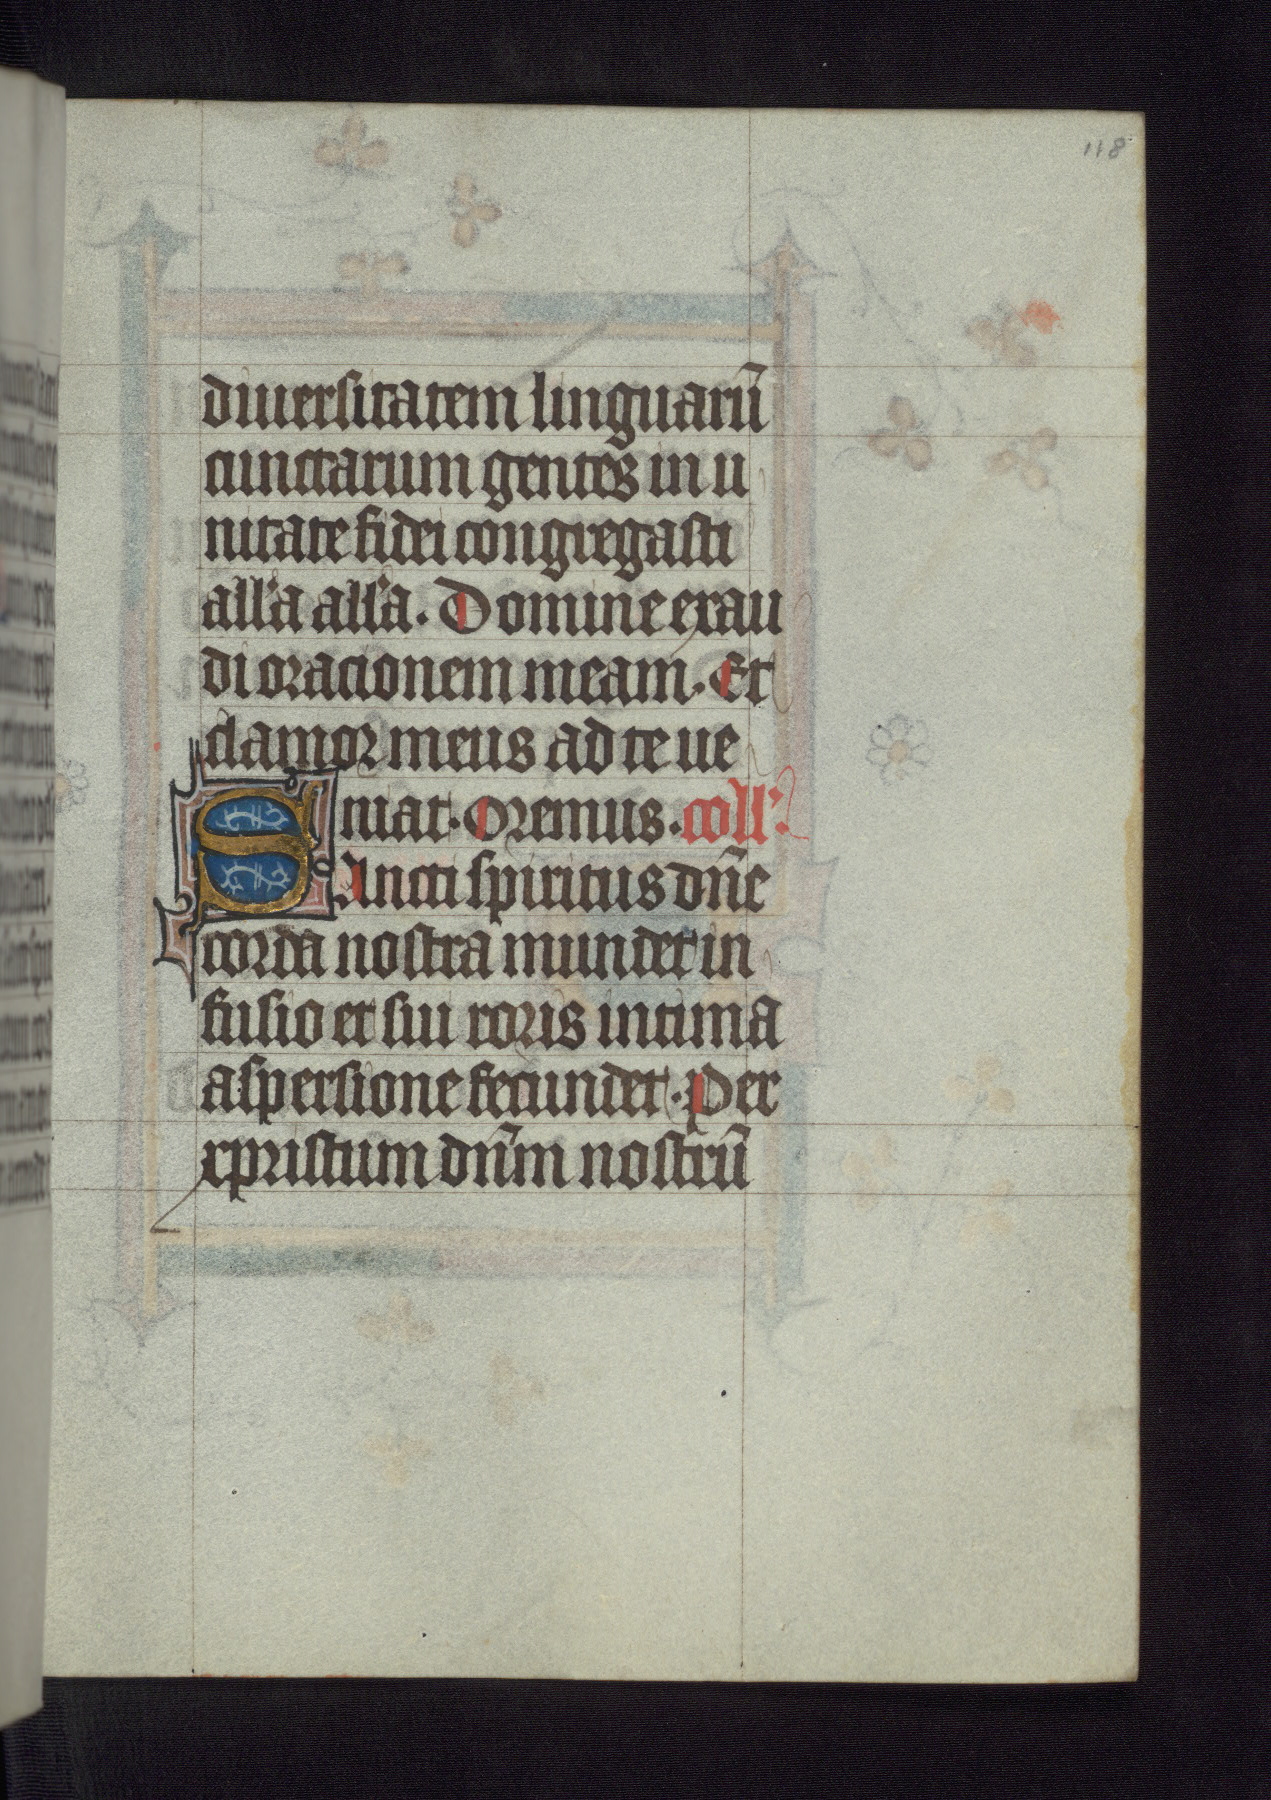 118
diuersitatem linguarū
cunctarum gentes in u
nitate fidei congregasti
all'a all'a. Domine exau
di oracionem meam. Et
clamor meus ad te ue
niat. Oremus. coll'.
SAncti spiritus dn̄e
corda nostra mundet in
fusio et sui roris intima
aspersione fecundet. Per
xpristum dn̄m nostrū